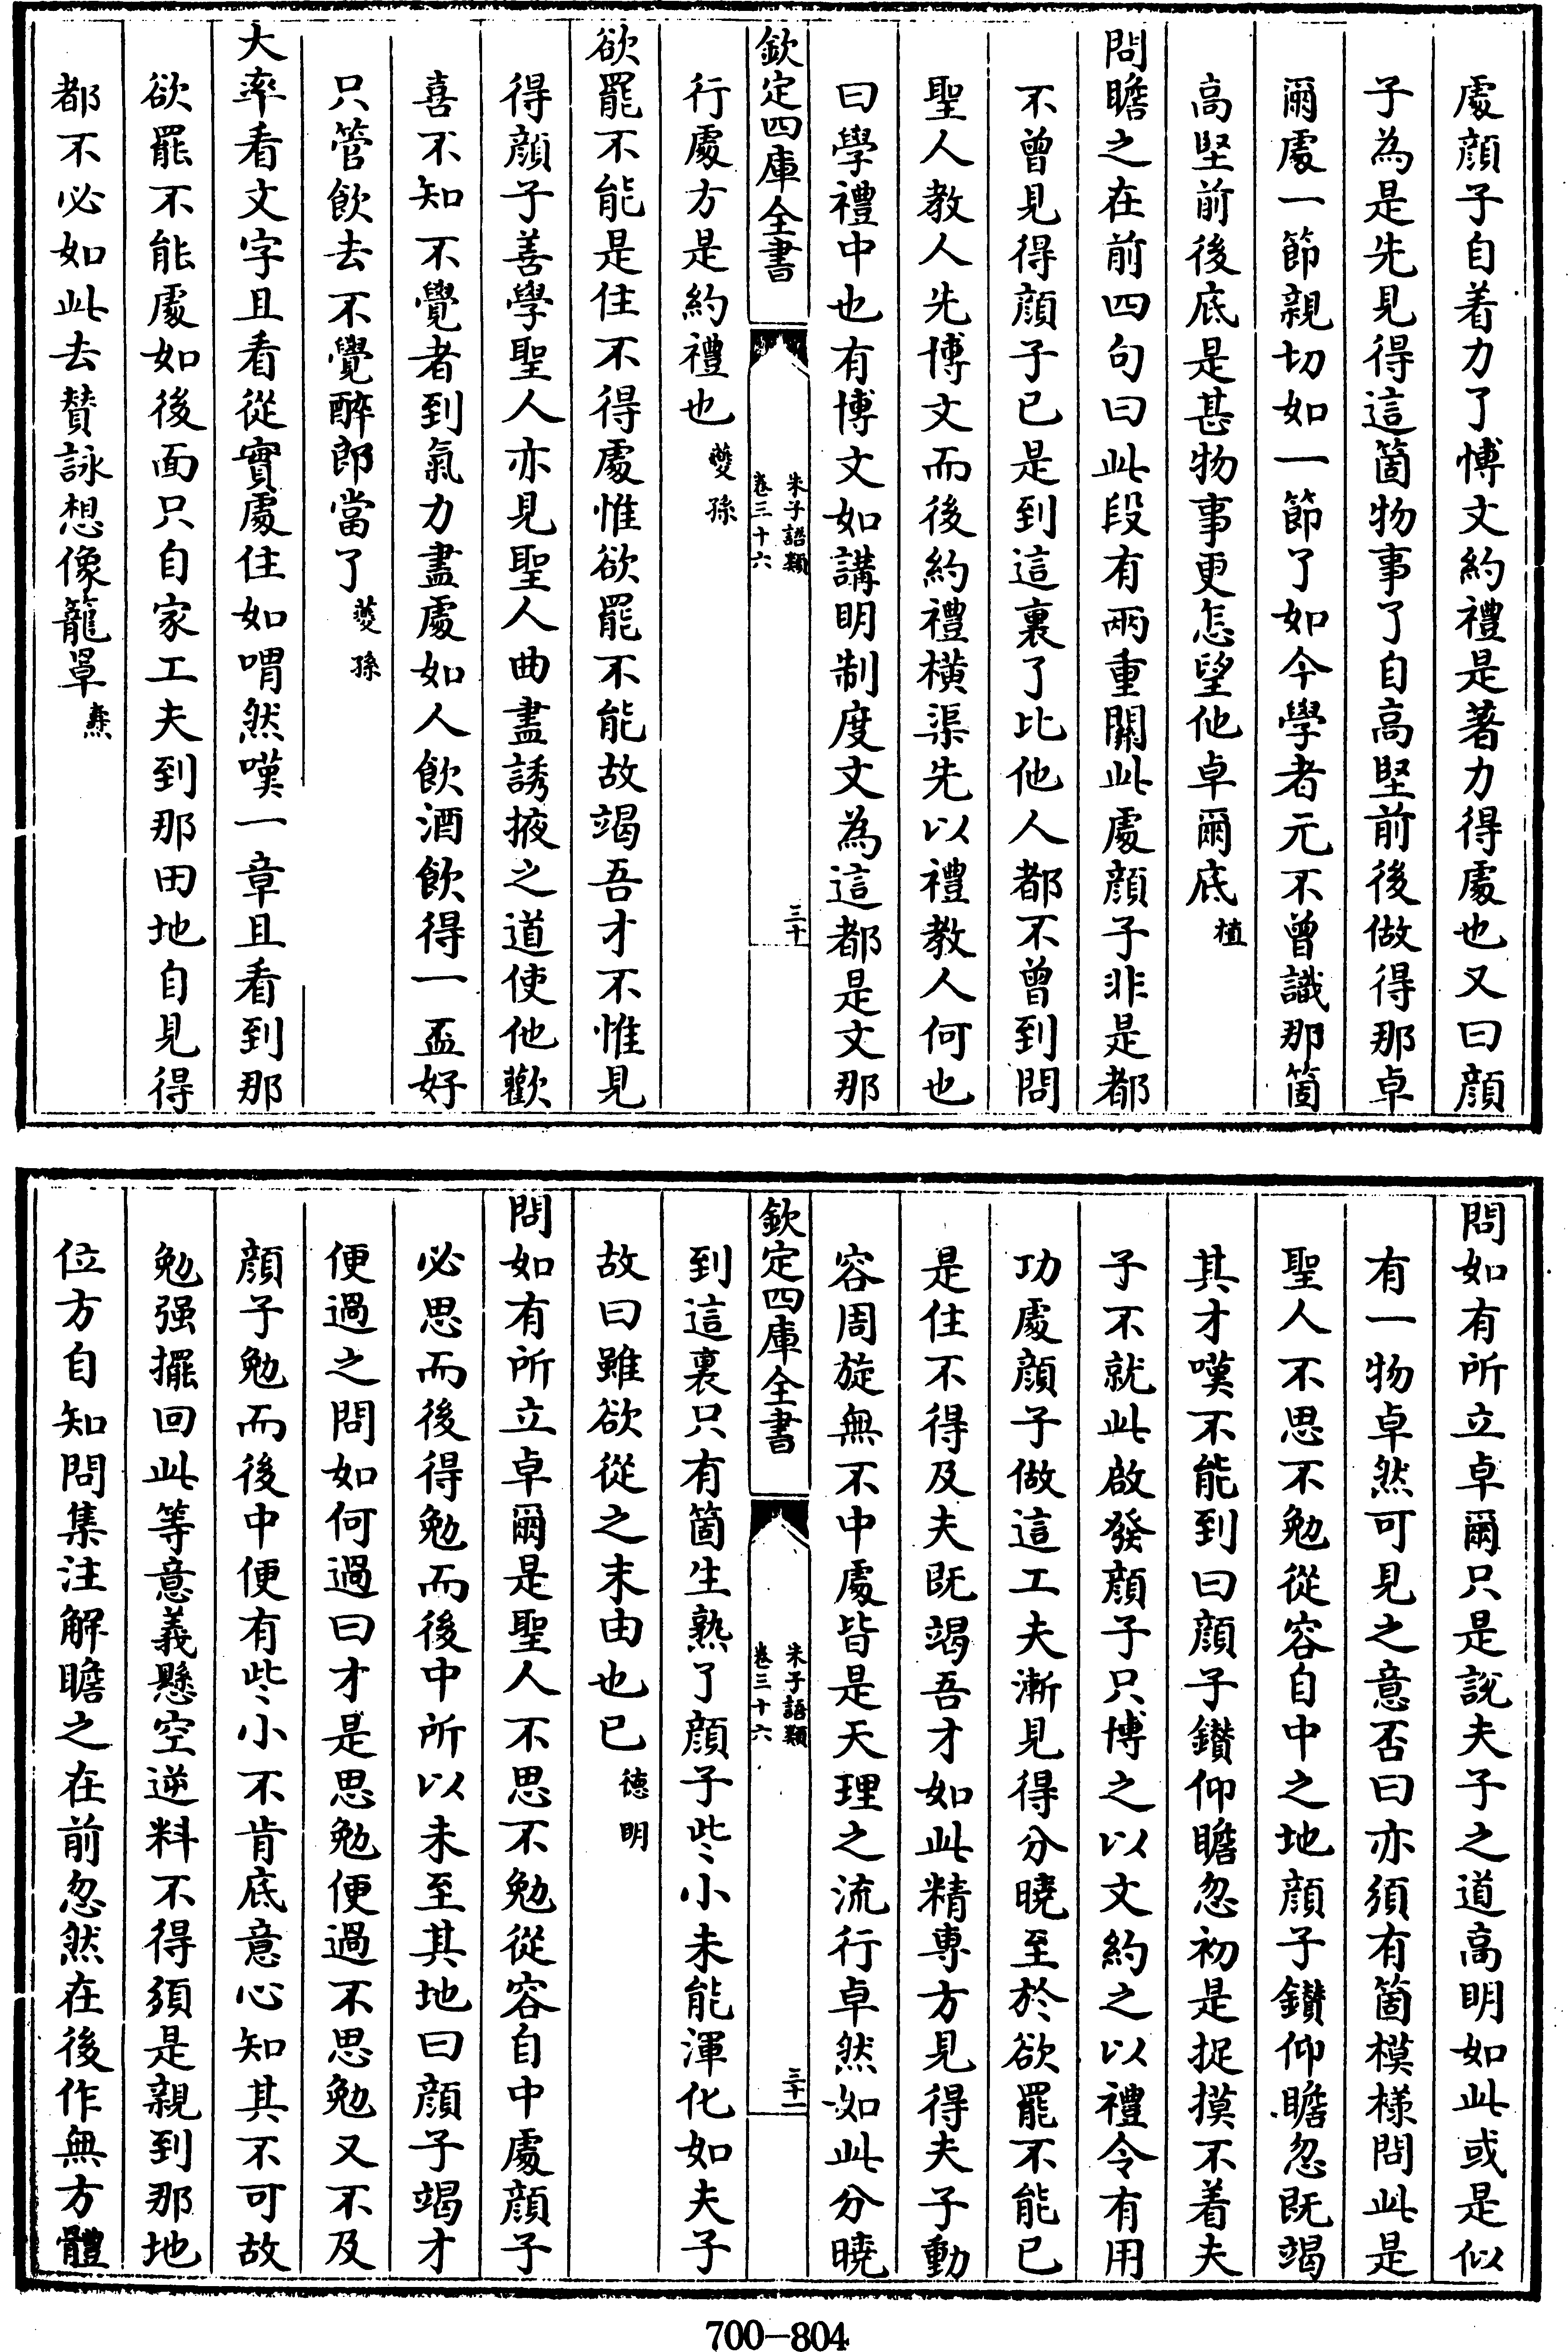 處顔子自着力了博文約禮是著力得處也又曰顔
子為是先見得這箇物事了自高堅前後做得那卓
爾處一節親切如一節了如今學者元不曾識那箇
高堅前後底是甚物事更怎望他卓爾底植
問瞻之在前四句曰此段有兩重關此處顔子非是都
不曾見得顔子已是到這裏了比他人都不曾到問
聖人教人先博文而後約禮橫渠先以禮教人何也
曰學禮中也有博文如講明制度文為這都是文那
欽定四庫全書
朱子語類
卷三十六
三十
行處方是約禮也夔孫
欲罷不能是住不得處惟欲罷不能故竭吾才不惟見
得顔子善學聖人亦見聖人曲盡誘掖之道使他歡
喜不知不覺者到氣力盡處如人飲酒飲得一盃好
只管飲去不覺醉郎當了夔孫
大率看文字且看從實處住如喟然嘆一章且看到那
欲罷不能處如後面只自家工夫到那田地自見得
都不必如此去賛詠想像籠罩燾
問如有所立卓爾只是說夫子之道高明如此或是似
有一物卓然可見之意否曰亦須有箇模様問此是
聖人不思不勉從容自中之地顔子鑚仰瞻忽既竭
其才嘆不能到曰顔子鑚仰瞻忽初是捉摸不着夫
子不就此啟發顔子只博之以文約之以禮令有用
功處顔子做這工夫漸見得分曉至於欲罷不能已
是住不得及夫既竭吾才如此精專方見得夫子動
容周旋無不中處皆是天理之流行卓然如此分曉
欽定四庫全書
朱子語類
卷三十六
三十一
到這裏只有箇生熟了顔子些小未能渾化如夫子
故曰雖欲從之末由也已德明
問如有所立卓爾是聖人不思不勉從容自中處顔子
必思而後得勉而後中所以未至其地曰顔子竭才
便過之問如何過曰才是思勉便過不思勉又不及
顔子勉而後中便有些小不肯底意心知其不可故
勉强擺回此等意義懸空逆料不得須是親到那地
位方自知問集注解瞻之在前忽然在後作無方體
700-804